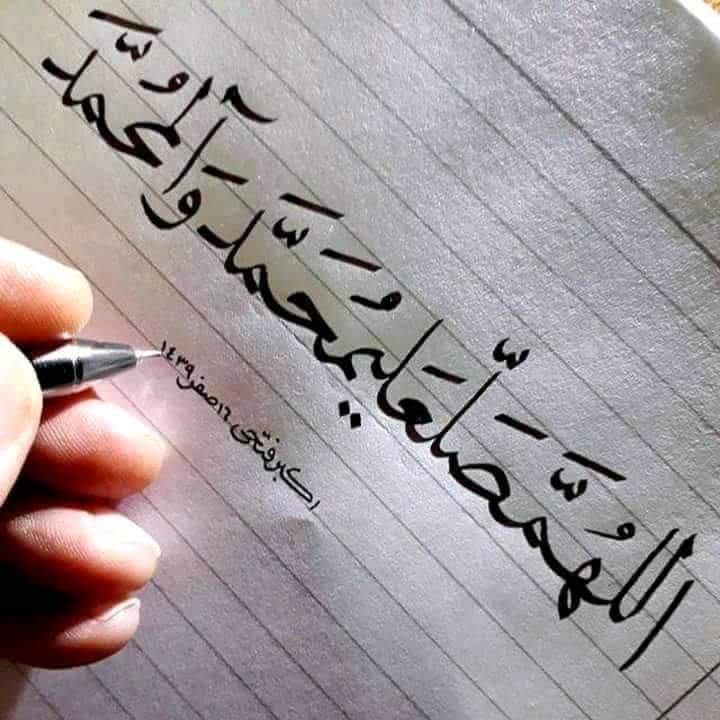 اللهُمَّ صَلِّ عَلي مُحَمَّد وَآلِ مُحمَّد
اکبر فتحی ١٦ صفر ١٤٣٩